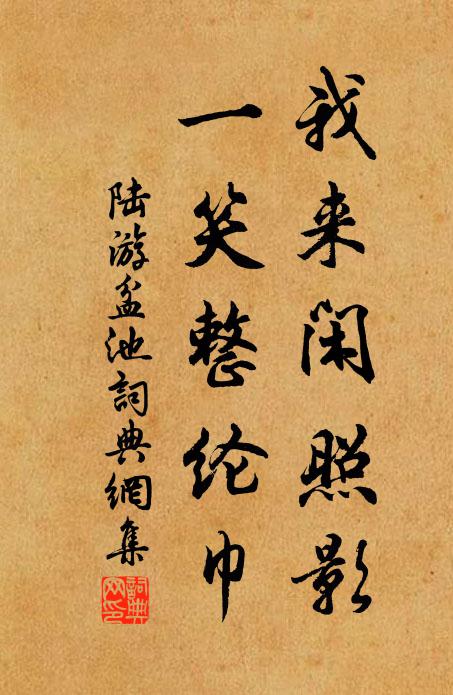 我来闲照影
一笑整纶巾
陆游盆池詞典網集
詞典网印